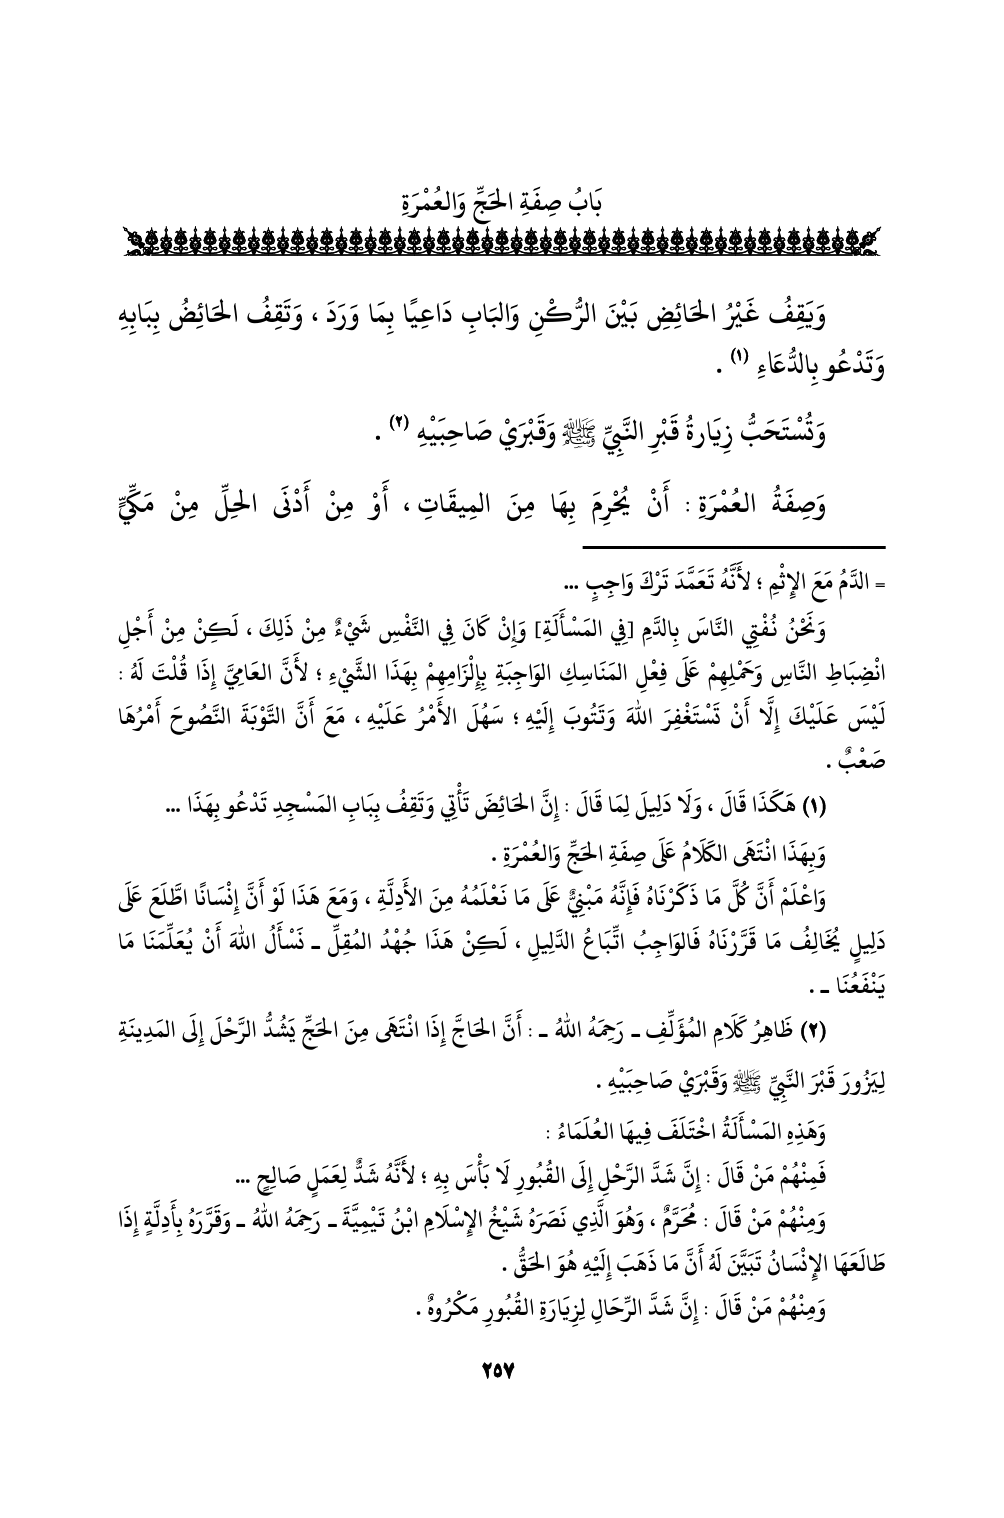 بَابُ صِفَةِ الحَجِّ وَالعُمْرَةِ
وَيَقِفُ غَيْرُ الحَائِضِ بَيْنَ الرُّكْنِ وَالبَابِ دَاعِيًا بِمَا وَرَدَ ، وَتَقِفُ الحَائِضُ بِبَابِهِ
وَتَدْعُو بِالدُّعَاءِ (١) .
وَتُسْتَحَبُّ زِيَارةُ قَبْرِ النَّبِيِّ ﷺ وَقَبْرَيْ صَاحِبَيْهِ (٢) .
وَصِفَةُ العُمْرَةِ : أَنْ يُحْرِمَ بِهَا مِنَ المِيقَاتِ ، أَوْ مِنْ أَدْنَى الحِلِّ مِنْ مَكِّيٍّ
= الدَّمُ مَعَ الإِثْمِ ؛ لأَنَّهُ تَعَمَّدَ تَرْكَ وَاجِبٍ ...
وَنَحْنُ نُفْتِي النَّاسَ بِالدَّمِ [فِي المَسْأَلَةِ] وَإِنْ كَانَ فِي النَّفْسِ شَيْءٌ مِنْ ذَلِكَ ، لَكِنْ مِنْ أَجْلِ
انْضِبَاطِ النَّاسِ وَحَمْلِهِمْ عَلَى فِعْلِ المَنَاسِكِ الوَاجِبَةِ بِإِلْزَامِهِمْ بِهَذَا الشَّيْءِ ؛ لأَنَّ العَامِيَّ إِذَا قُلْتَ لَهُ :
لَيْسَ عَلَيْكَ إِلَّا أَنْ تَسْتَغْفِرَ اللهَ وَتَتُوبَ إِلَيْهِ ؛ سَهُلَ الأَمْرُ عَلَيْهِ ، مَعَ أَنَّ التَّوْبَةَ النَّصُوحَ أَمْرُهَا
صَعْبٌ .
(١) هَكَذَا قَالَ ، وَلَا دَلِيلَ لِمَا قَالَ : إِنَّ الحَائِضَ تَأْتِي وَتَقِفُ بِبَابِ المَسْجِدِ تَدْعُو بِهَذَا ...
وَبِهَذَا انْتَهَى الكَلَامُ عَلَى صِفَةِ الحَجِّ وَالعُمْرَةِ .
وَاعْلَمْ أَنَّ كُلَّ مَا ذَكَرْنَاهُ فَإِنَّهُ مَبْنِيٌّ عَلَى مَا نَعْلَمُهُ مِنَ الأَدِلَّةِ ، وَمَعَ هَذَا لَوْ أَنَّ إِنْسَانًا اطَّلَعَ عَلَى
دَلِيلٍ يُخَالِفُ مَا قَرَّرْنَاهُ فَالوَاجِبُ اتِّبَاعُ الدَّلِيلِ ، لَكِنْ هَذَا جُهْدُ المُقِلِّ ـ نَسْأَلُ اللهَ أَنْ يُعَلِّمَنَا مَا
يَنْفَعُنَا ـ .
(٢) ظَاهِرُ كَلَامِ المُؤَلِّفِ ـ رَحِمَهُ اللهُ ـ : أَنَّ الحَاجَّ إِذَا انْتَهَى مِنَ الحَجِّ يَشُدُّ الرَّحْلَ إِلَى المَدِينَةِ
لِيَزُورَ قَبْرَ النَّبِيِّ ﷺ وَقَبْرَيْ صَاحِبَيْهِ .
وَهَذِهِ المَسْأَلَةُ اخْتَلَفَ فِيهَا العُلَمَاءُ :
فَمِنْهُمْ مَنْ قَالَ : إِنَّ شَدَّ الرَّحْلِ إِلَى القُبُورِ لَا بَأْسَ بِهِ ؛ لأَنَّهُ شَدٌّ لِعَمَلٍ صَالِحٍ ...
وَمِنْهُمْ مَنْ قَالَ : مُحَرَّمٌ ، وَهُوَ الَّذِي نَصَرَهُ شَيْخُ الإِسْلَامِ ابْنُ تَيْمِيَّةَ ـ رَحِمَهُ اللهُ ـ وَقَرَّرَهُ بِأَدِلَّةٍ إِذَا
طَالَعَهَا الإِنْسَانُ تَبَيَّنَ لَهُ أَنَّ مَا ذَهَبَ إِلَيْهِ هُوَ الحَقُّ .
وَمِنْهُمْ مَنْ قَالَ : إِنَّ شَدَّ الرِّحَالِ لِزِيَارَةِ القُبُورِ مَكْرُوهٌ .
٢٥٧